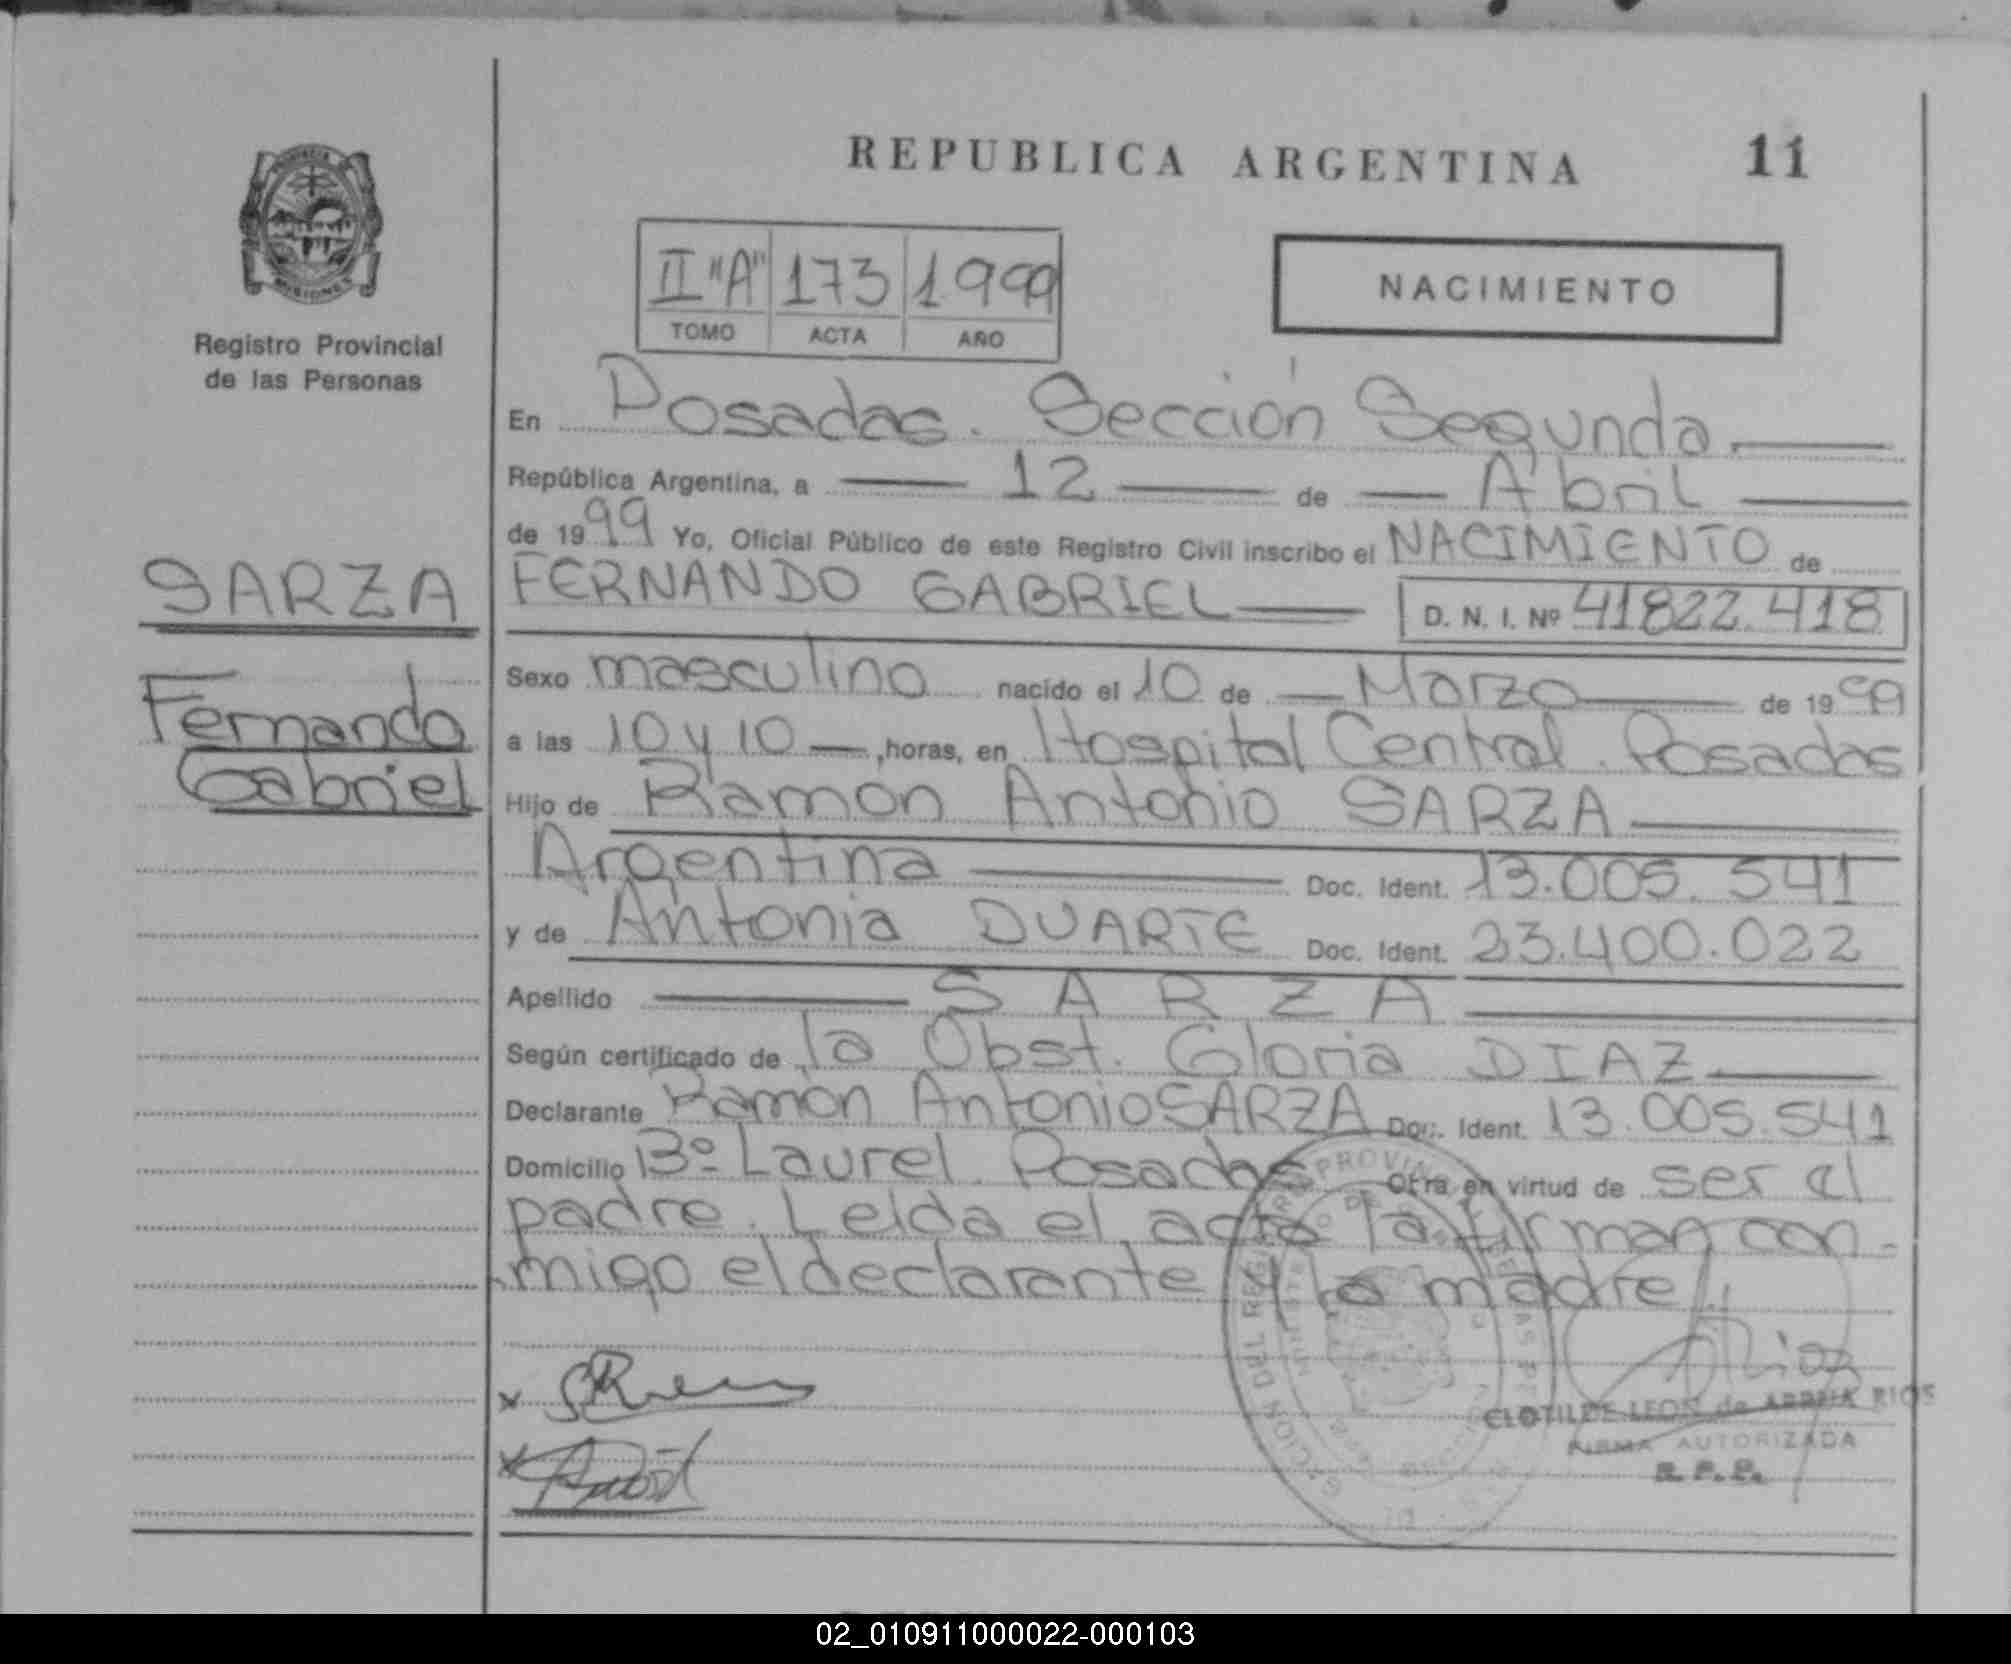 REPUBLICA ARGENTINA 11
II "A" 173 1999
TOMO ACTA AÑO
NACIMIENTO
MISIONES
Registro Provincial
de las Personas
SARZA
Fernando
Gabriel
En Posadas. Sección Segunda.
República Argentina, a 12 de Abril
de 1999 Yo, Oficial Público de este Registro Civil inscribo el NACIMIENTO de
FERNANDO GABRIEL D. N. I. Nº 41822.418
Sexo masculino nacido el 10 de Marzo de 1999
a las 10 y 10 , horas, en Hospital Central. Posadas
Hijo de Ramón Antonio SARZA
Argentina Doc. Ident. 13.005.541
y de Antonia DUARTE Doc. Ident. 23.400.022
Apellido SARZA
Según certificado de la Obst. Gloria DIAZ
Declarante Ramón Antonio SARZA Doc. Ident. 13.005.541
Domicilio Bº Laurel. Posadas Otra en virtud de ser el
padre. Leída el acta la firman con-
migo el declarante y la madre.
CLOTILDE LEON de ARRUA RIOS
FIRMA AUTORIZADA
R. P. P.
02_010911000022-000103